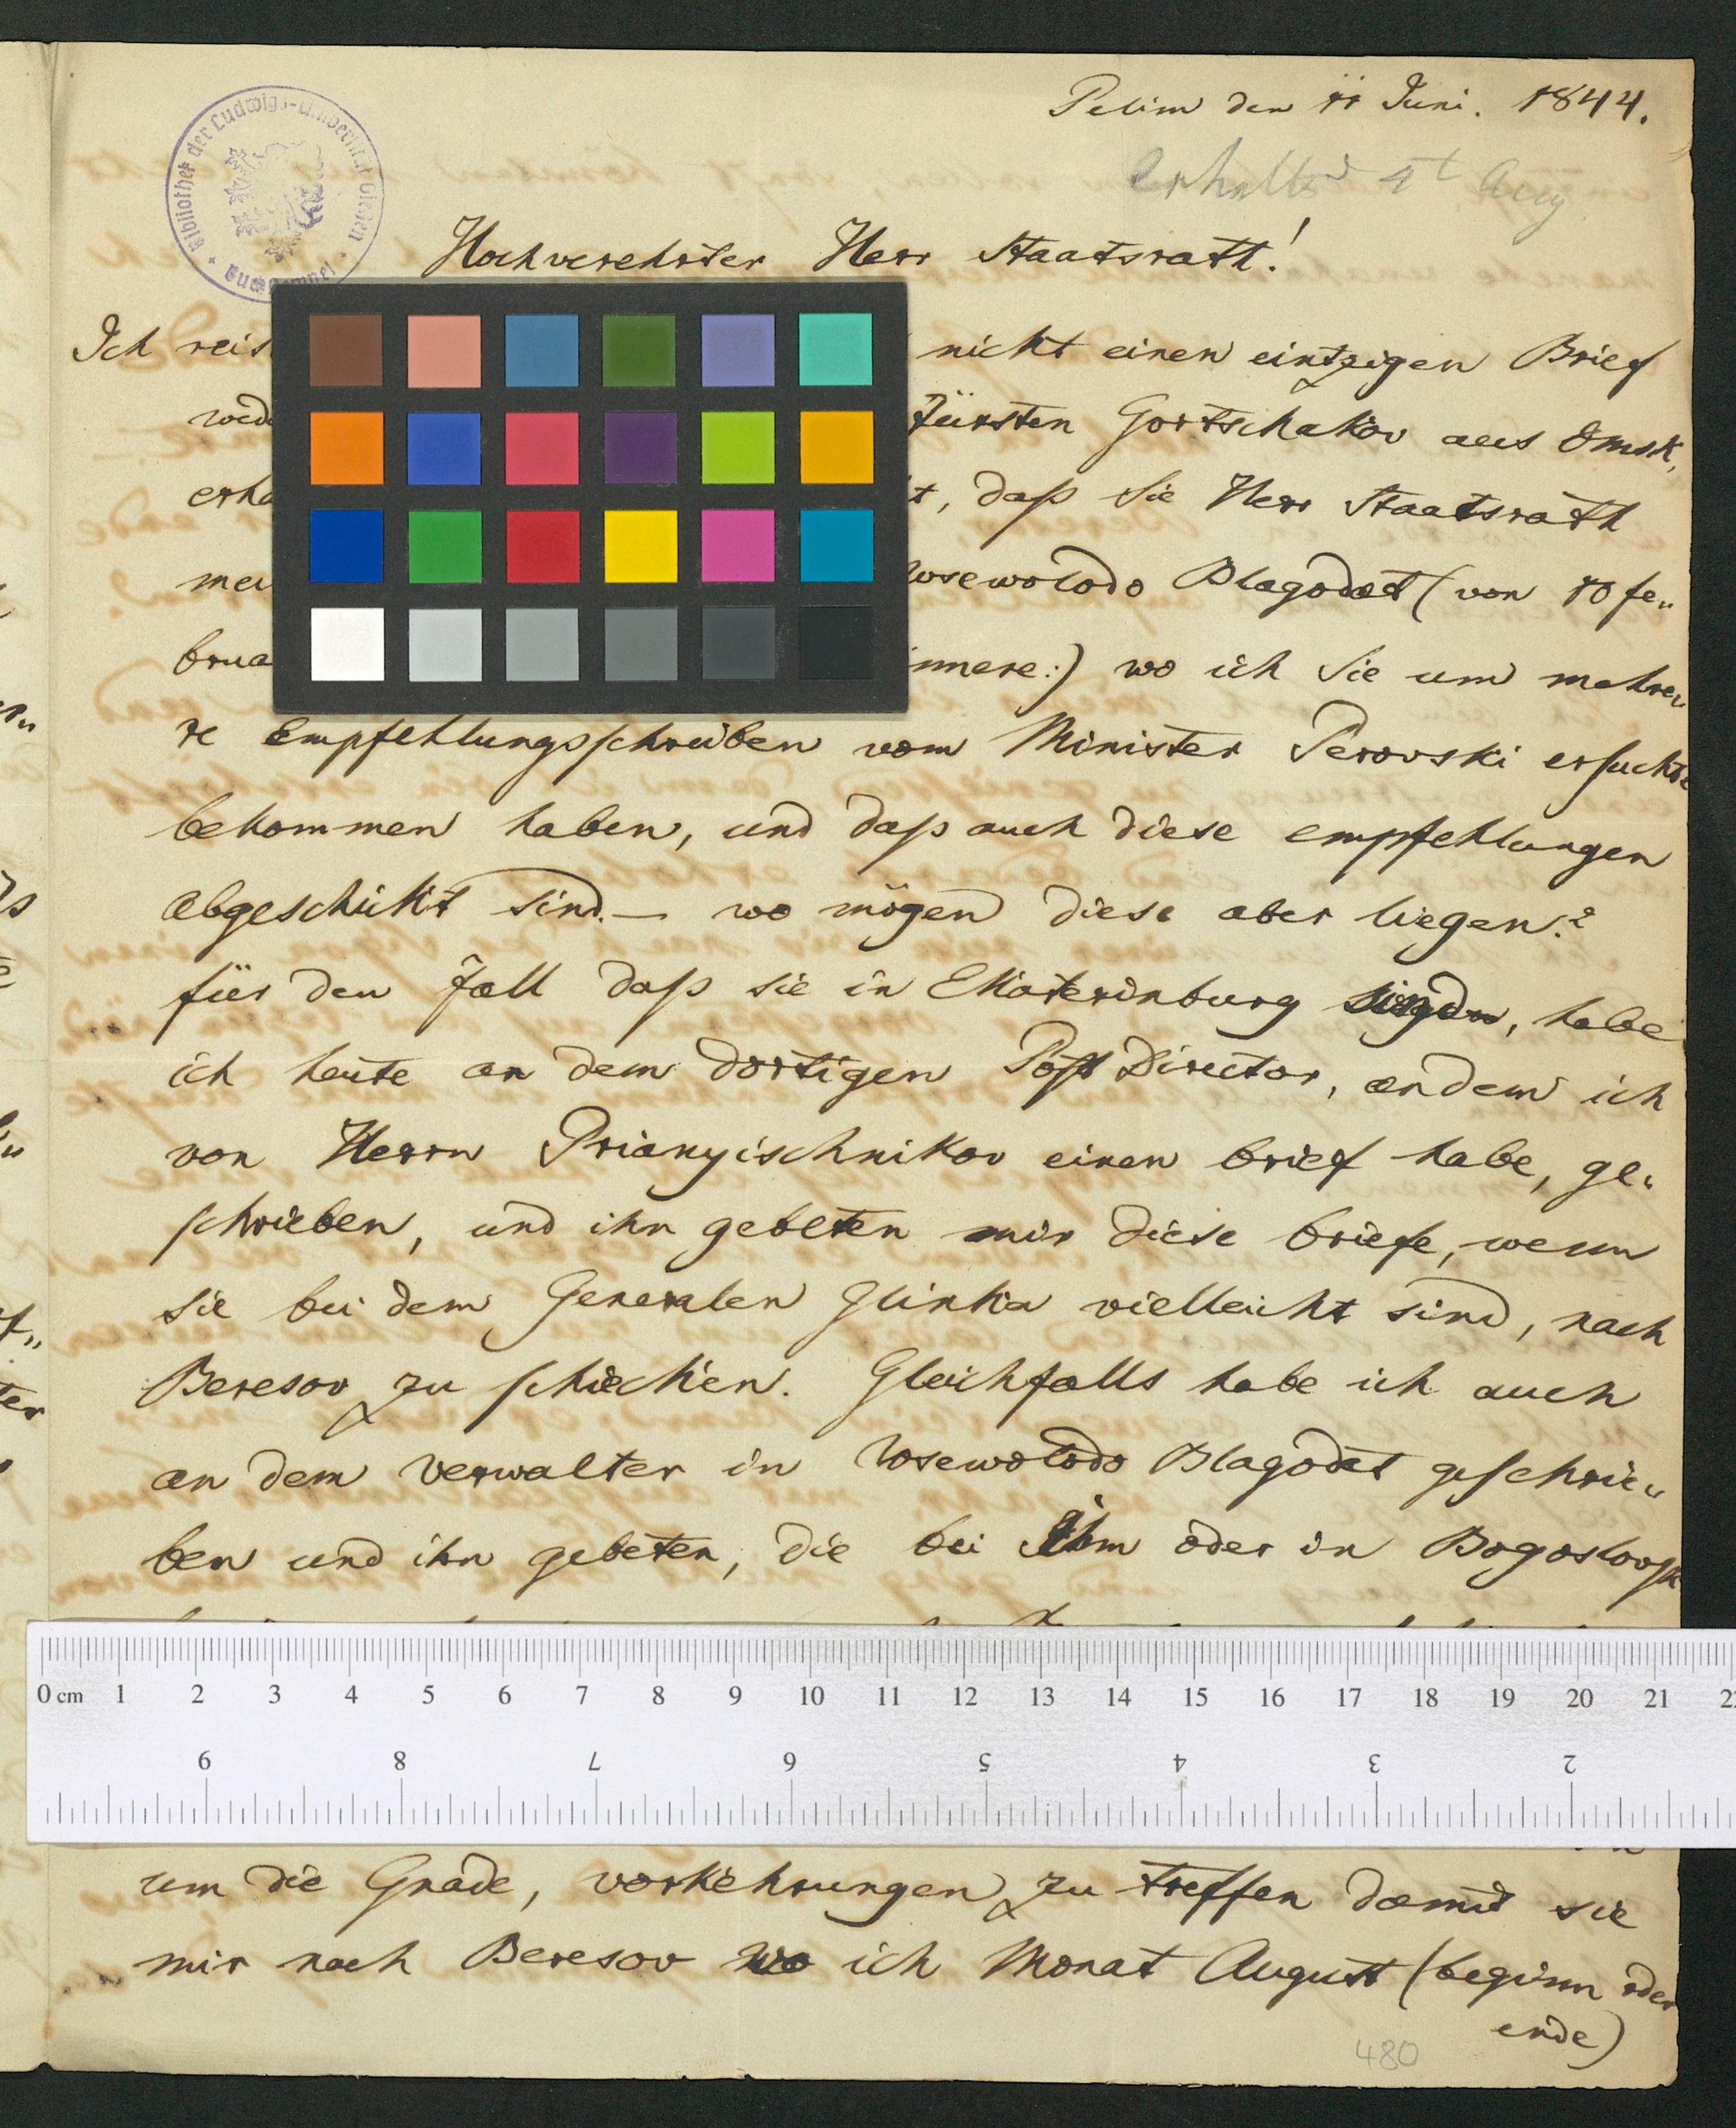 Pelim den 11 Juni. 1844.
Erhalten 4t Aug
Bibliothek der Ludwigs-Universität Giessen
Hochverehrter Herr Staatsrath!
Ich nicht einen eintzigen Brief
Fürsten Gortschakov aus Omsk,
daß Sie Herr Staatsrath
Wsewolodo Blagodat (von 10 fe„
wo ich Sie um mehre„
re Empfehlungsschreiben vom Minister Perovski ersuchte
bekommen haben, und daß auch diese empfehlungen
abgeschickt sind. — wo mögen diese aber liegen?
für den Fall daß sie in Ekaterinburg habe
ich heute an dem dortigen Post Director, an dem ich
von Herrn Prianyischnikov einen brief habe, ge„
schrieben, und ihn gebeten mir diese briefe, wenn
sie bei dem Generalen Glinka vielleicht sind, nach
Beresov zu schicken. Gleichfalls habe ich auch
an dem verwalter in Wsewolodo Blagodat geschrie„
ben und ihn gebeten, die bei ihm oder in Bogoslovsk
0 cm 1 2 3 4 5 6 7 8 9 10 11 12 13 14 15 16 17 18 19 20 21
9 8 7 6 5 4 3 2
um die Gnade, vorkehrungen zu treffen damit sie
mir nach Beresov wo ich Monat August (beginn oder
ende)
480